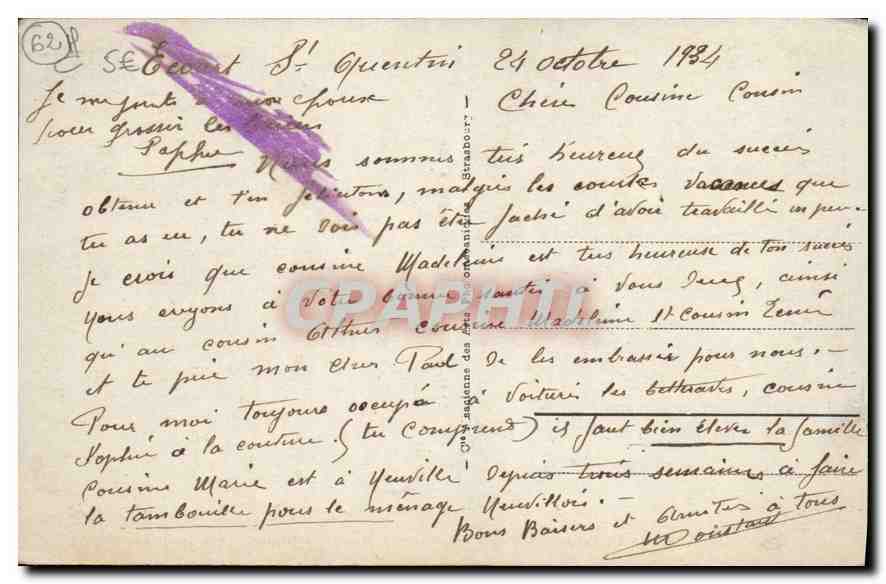 62
SE Ecourt St Quentin 24 octobre 1934
Je
pour grossir les
Sophie
Chère Cousine Cousin
Nous sommes très heureux du succès
obtenu et t'en félicitons, malgré les courtes vacances que
tu as eu, tu ne dois pas être faché d'avoir travaillé un peu.
Je crois que cousine Madeleine est très heureuse de ton succès
nous croyons à votre bonne santé à vous deux, ainsi
qu'au cousin cousine Madeleine et cousin René
et te prie mon cher Paul de les embrasser pour nous.-
Pour moi toujours occupé à voiturer les betteraves, cousine
Sophie à la couture. (tu comprend) il faut bien élever la famille
cousine Marie est à Neuville depuis trois semaines à faire
la tambouille pour le ménage Neuvillois.-
Bons Baisers et Amitiés à tous
Cie Alsacienne des Arts Photomécaniques Strasbourg
CPAPHIL